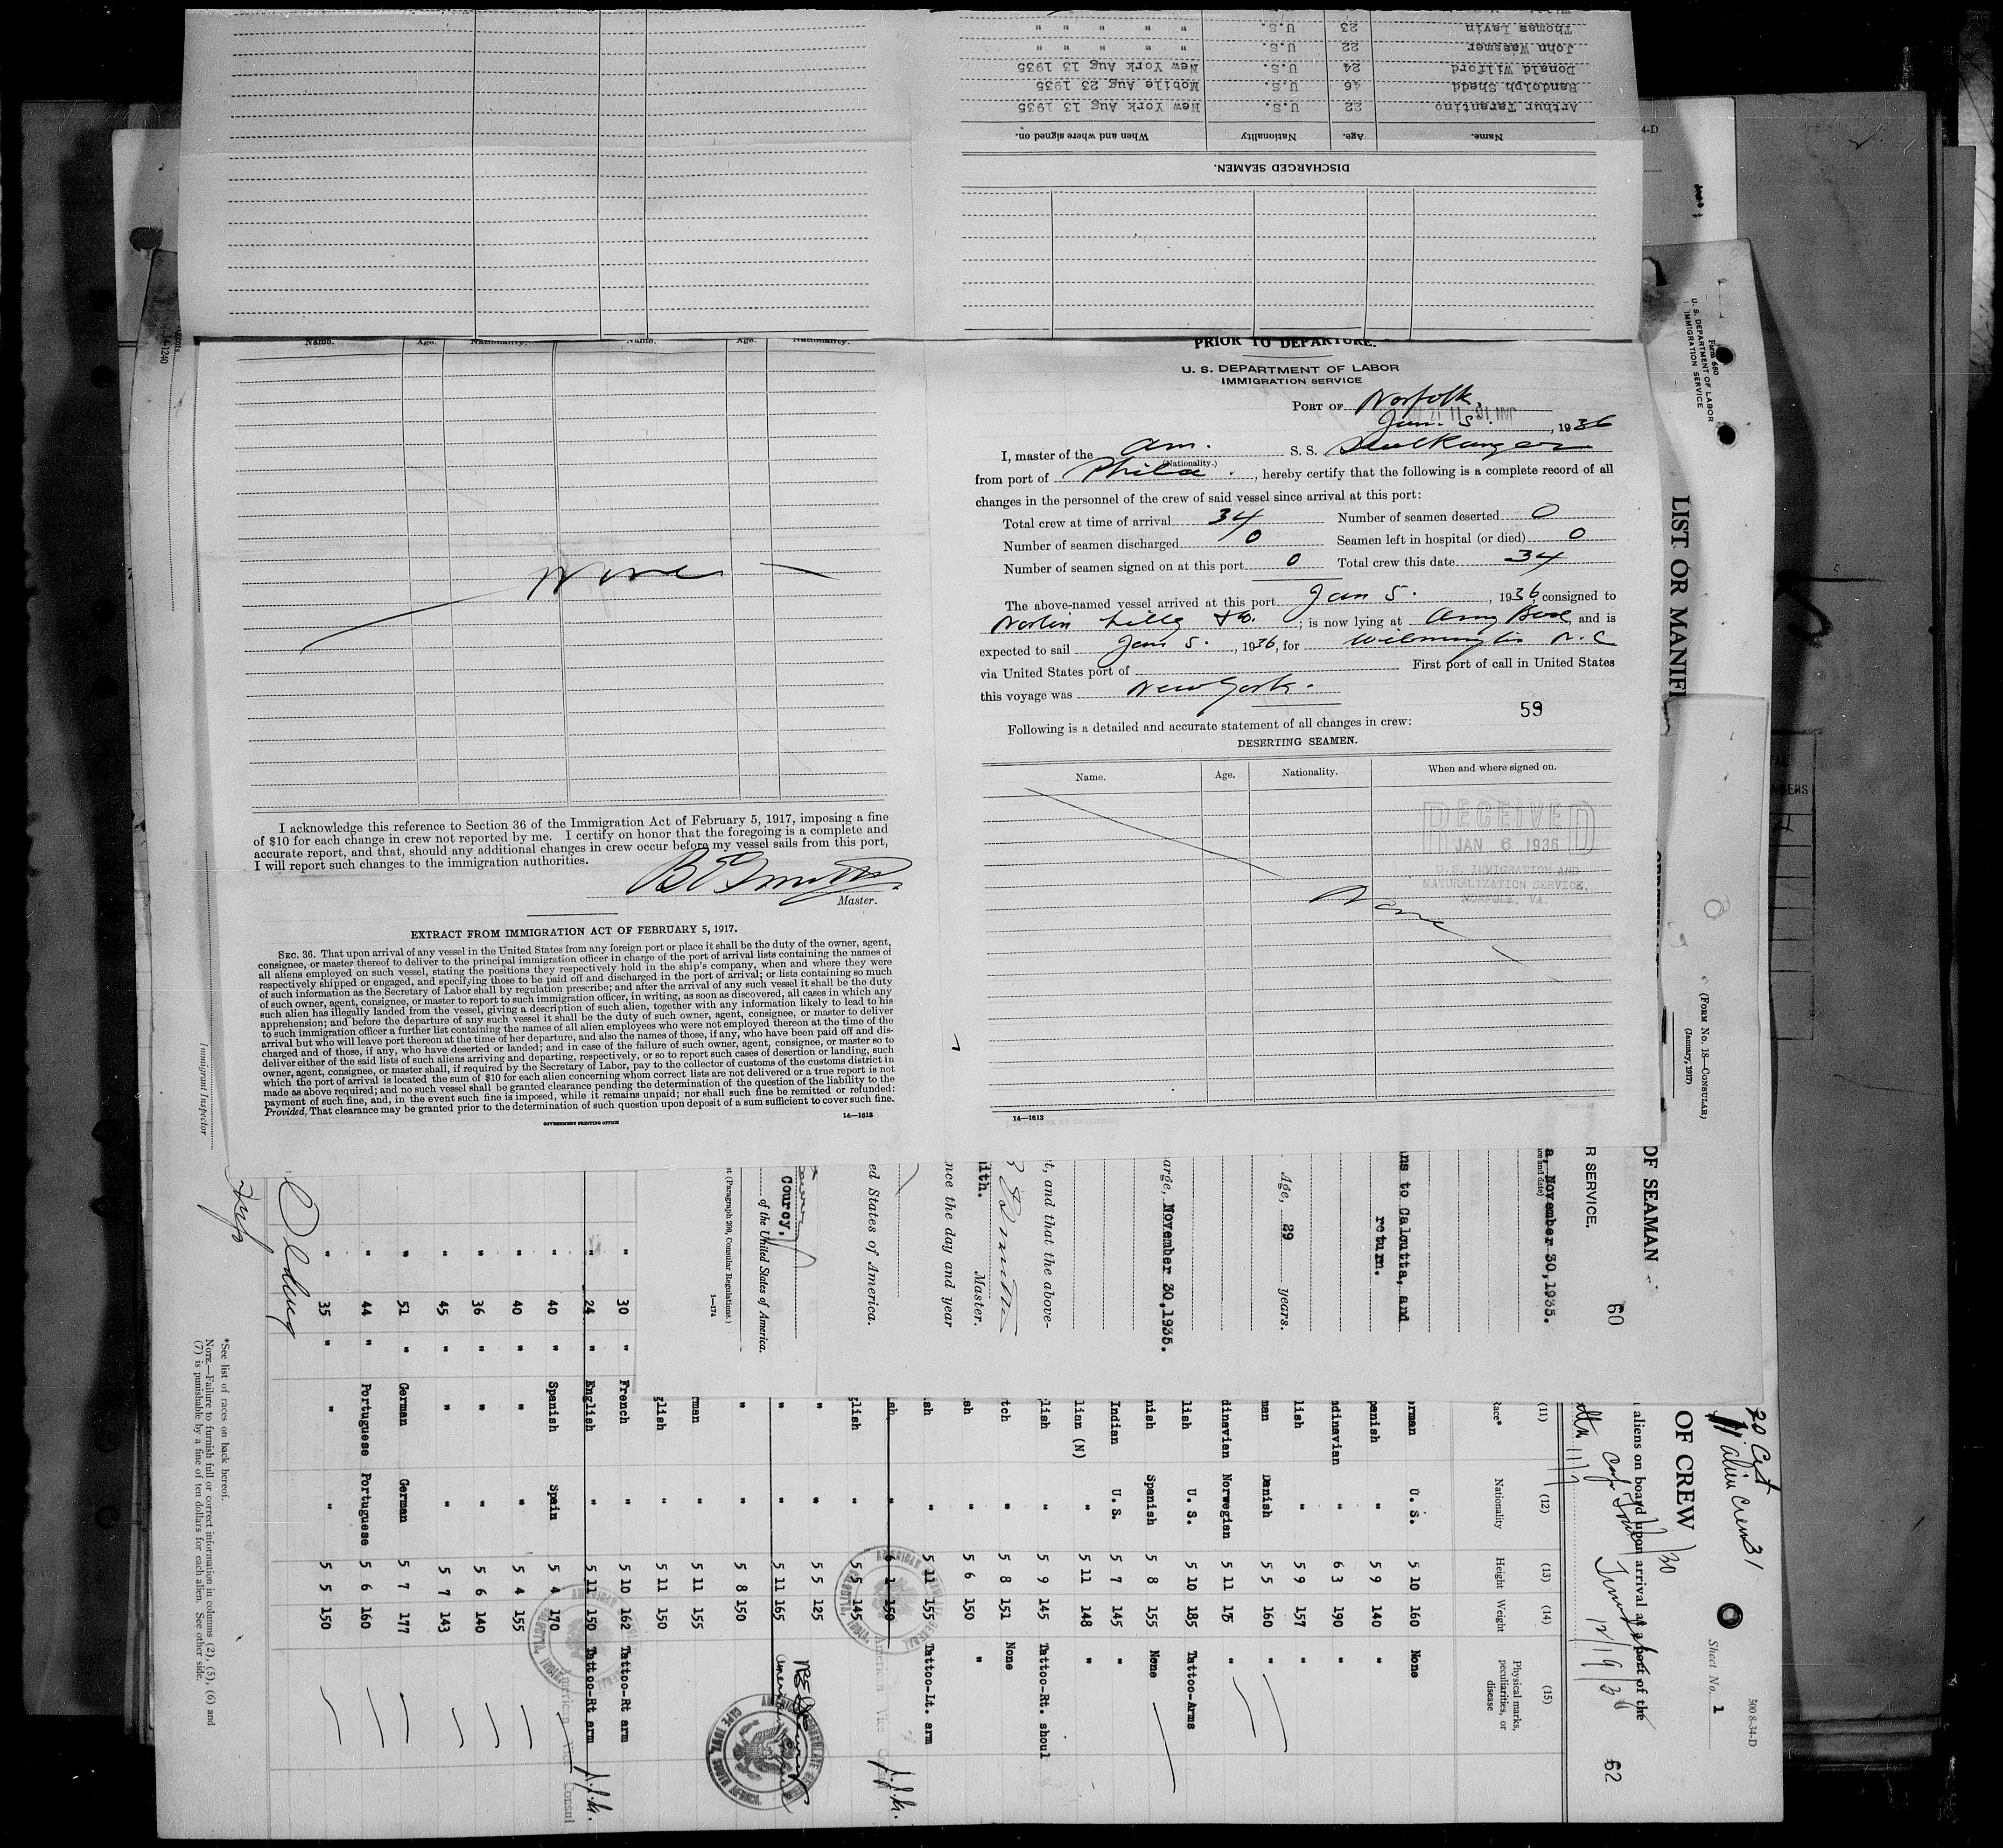 Arthur Tarantino 22 U.S. New York Aug 13 1935
Randolph Shedd 46 U.S. Mobile Aug 23 1935
Donald Wilford 24 U.S. New York Aug 13 1935
John Wassmer 22 U.S. " " " "
Thomas Lavin 23 U.S. " " " "
Name. Age. Nationality. When and where signed on.
DISCHARGED SEAMEN.
Name. Age. Nationality. Name. Age. Nationality.
None
I acknowledge this reference to Section 36 of the Immigration Act of February 5, 1917, imposing a fine
of $10 for each change in crew not reported by me. I certify on honor that the foregoing is a complete and
accurate report, and that, should any additional changes in crew occur before my vessel sails from this port,
I will report such changes to the immigration authorities.
Master.
EXTRACT FROM IMMIGRATION ACT OF FEBRUARY 5, 1917.
SEC. 36. That upon arrival of any vessel in the United States from any foreign port or place it shall be the duty of the owner, agent,
consignee, or master thereof to deliver to the principal immigration officer in charge of the port of arrival lists containing the names of
all aliens employed on such vessel, stating the positions they respectively hold in the ship's company, when and where they were
respectively shipped or engaged, and specifying those to be paid off and discharged in the port of arrival; or lists containing so much
of such information as the Secretary of Labor shall by regulation prescribe; and after the arrival of any such vessel it shall be the duty
of such owner, agent, consignee, or master to report to such immigration officer, in writing, as soon as discovered, all cases in which any
such alien has illegally landed from the vessel, giving a description of such alien, together with any information likely to lead to his
apprehension; and before the departure of any such vessel it shall be the duty of such owner, agent, consignee, or master to deliver
to such immigration officer a further list containing the names of all alien employees who were not employed thereon at the time of the
arrival but who will leave port thereon at the time of her departure, and also the names of those, if any, who have been paid off and dis-
charged and of those, if any, who have deserted or landed; and in case of the failure of such owner, agent, consignee, or master so to
deliver either of the said lists of such aliens arriving and departing, respectively, or so to report such cases of desertion or landing, such
owner, agent, consignee, or master shall, if required by the Secretary of Labor, pay to the collector of customs of the customs district in
which the port of arrival is located the sum of $10 for each alien concerning whom correct lists are not delivered or a true report is not
made as above required; and no such vessel shall be granted clearance pending the determination of the question of the liability to the
payment of such fine, and, in the event such fine is imposed, while it remains unpaid; nor shall such fine be remitted or refunded:
Provided, That clearance may be granted prior to the determination of such question upon deposit of a sum sufficient to cover such fine.
GOVERNMENT PRINTING OFFICE
14—1613
PRIOR TO DEPARTURE.
U. S. DEPARTMENT OF LABOR
IMMIGRATION SERVICE
PORT OF Norfolk,
Jan. 5. , 1936
I, master of the Am. S. S.
(Nationality.)
from port of Phila. , hereby certify that the following is a complete record of all
changes in the personnel of the crew of said vessel since arrival at this port:
Total crew at time of arrival 34 Number of seamen deserted 0
Number of seamen discharged 0 Seamen left in hospital (or died) 0
Number of seamen signed on at this port 0 Total crew this date 34
The above-named vessel arrived at this port Jan 5. , 1936, consigned to
Norton Lilly & Co. ; is now lying at Army Base, and is
expected to sail Jan 5. , 1936, for Wilmington N.C
via United States port of First port of call in United States
this voyage was New York.
59
Following is a detailed and accurate statement of all changes in crew:
DESERTING SEAMEN.
Name. Age. Nationality. When and where signed on.
RECEIVED
JAN 6 1936
U.S. IMMIGRATION AND
NATURALIZATION SERVICE,
NORFOLK, VA.
None
14—1613
Form 680
U. S. DEPARTMENT OF LABOR
IMMIGRATION SERVICE
LIST OR MANIF
(FORM No. 18—CONSULAR)
(January, 1917)
OF SEAMAN
R SERVICE.
60
a, November 30, 1935.
ns to Calcutta, and
return.
Age, 29 years.
arge, November 30, 1935.
t, and that the above-
ith. Master.
nce the day and year
ed States of America.
Courcy,
of the United States of America.
t (Paragraph 209, Consular Regulations.)
1—174
20 Cgt
11 alien crew 31
500 8-34-D
Sheet No. 1
OF CREW
aliens on board upon arrival at a port of the
62
(11) (12) (13) (14) (15)
Race* Nationality Height Weight Physical marks, peculiarities, or disease
erman U. S. 5 10 160 None
panish " 5 9 140 "
ndinavian " 6 3 190 "
lish " 5 9 157 "
man Danish 5 5 160 "
dinavian Norwegian 5 11 175 "
lish U. S. 5 10 185 Tattoo-Arms
nish Spanish 5 8 155 None
Indian U. S. 5 7 145 "
lian (N) " 5 11 148 "
lish " 5 9 145 Tattoo-Rt. shoul
tch " 5 8 151 None
sh " 5 6 150 "
sh " 5 11 155 Tattoo-Lt. arm
sh, " 6 1 150
glish " 5 2 145
" " 5 5 125
" " 5 11 165
" " 5 8 150
rman " 5 11 155
glish " 5 11 150
" 30 " French " 5 10 162 Tattoo-Rt arm
" 24 " English " 5 11 150 Tattoo-Rt arm
" 40 " Spanish Spain 5 4 170
" 40 " " " 5 4 155
" 36 " " " 5 6 140
" 45 " " " 5 7 143
" 51 " German German 5 7 177
" 44 " Portuguese Portuguese 5 6 160
" 35 " " " 5 5 150
American Vice Consul
*See list of races on back hereof.
NOTE.—Failure to furnish full or correct information in columns (2), (5), (6) and
(7) is punishable by a fine of ten dollars for each alien. See other side.
Immigrant Inspector
14-1240
4-D